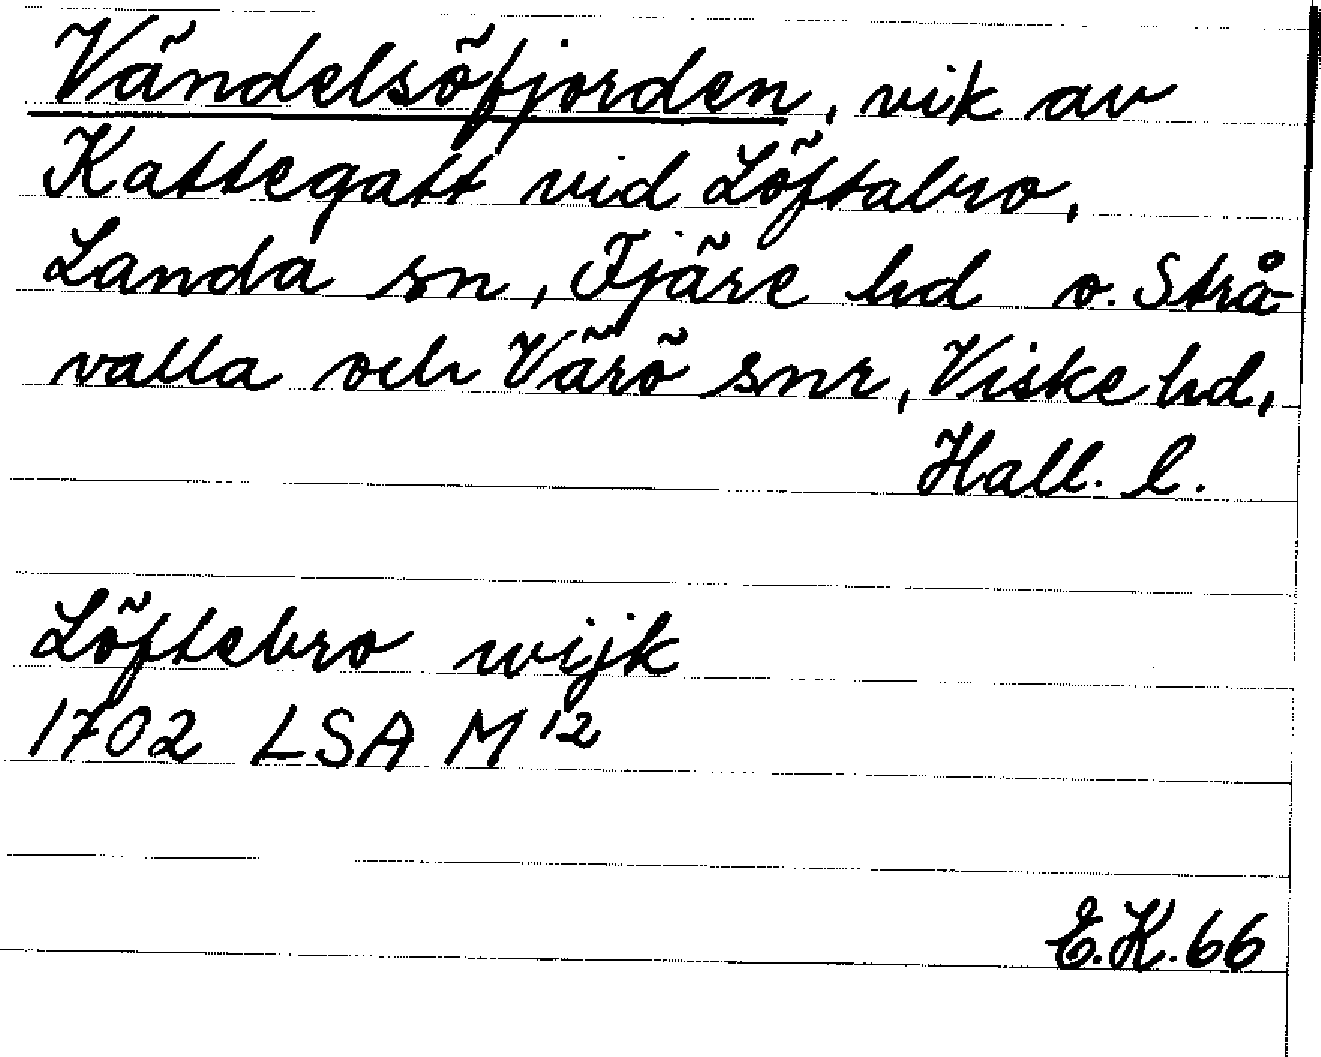 Vändelsöfjorden, vik av
Kattegatt vid Löftabro,
Landa sn, Fjäre hd o. Strå-
valla och Värö snr, Viske hd,
Hall. l.
Löftebro wijk
1702 LSA M¹²
E.K. 66